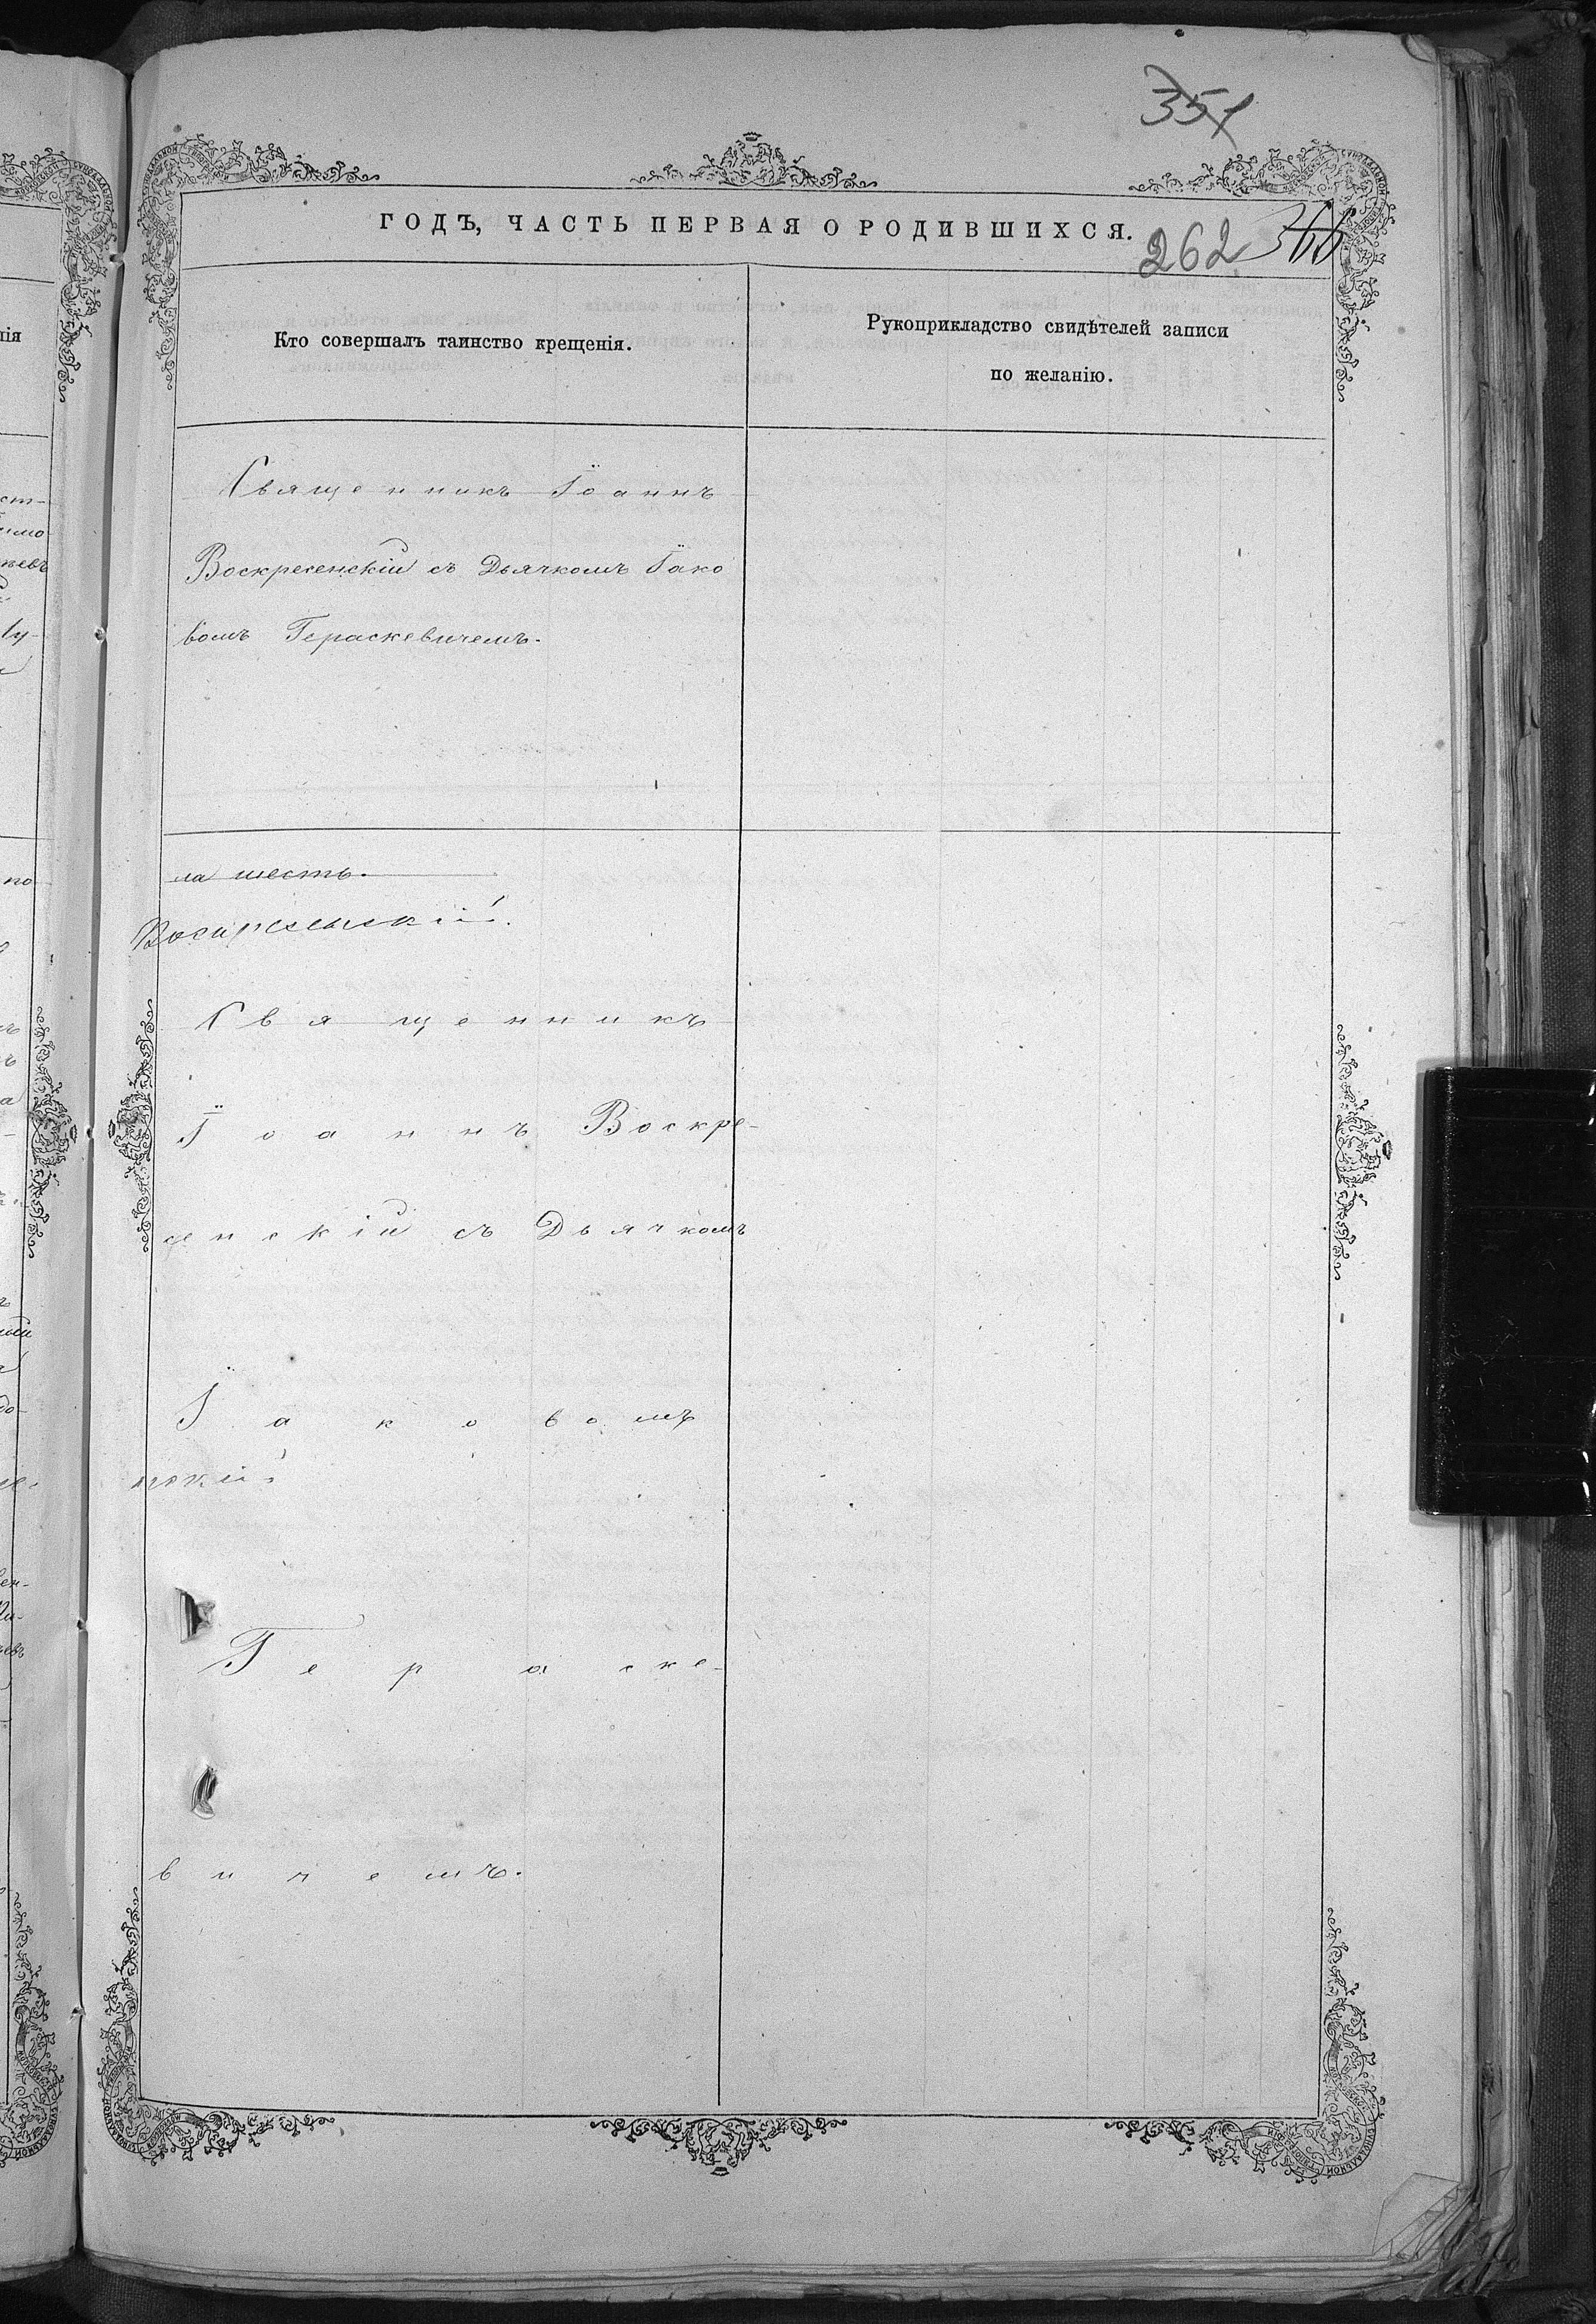 351
ГОДЪ, ЧАСТЬ ПЕРВАЯ О РОДИВШИХСЯ.
262
Кто совершалъ таинство крещенія.
Рукоприкладство свидѣтелей записи
по желанію.
Священникъ Іоаннъ
Воскресенскій съ Дьячкомъ Іако
вомъ Гераскевичемъ.
ла шесть.
Воскресенскій.
Священникъ
Іоаннъ Воскре-
сенскій съ Дьячкомъ
Іаковомъ
нскій
Гераске-
вичемъ.